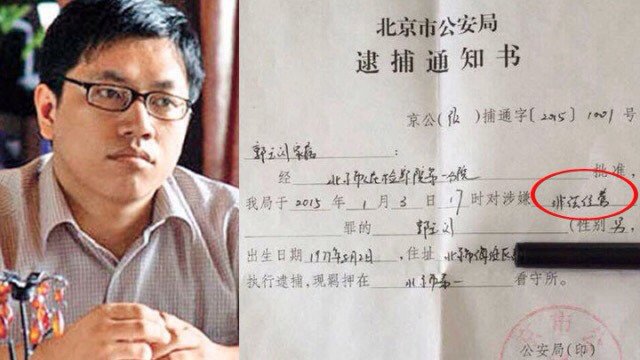 北京市公安局
逮捕通知书
京公( )捕通字[2015]1001号
郭玉闪家属
经 北京市人民检察院第一分院 批准,
我局于2015年1月3日17时对涉嫌非法经营
罪的 郭玉闪 (性别男,
出生日期1977年5月2日,住址 北京市海淀区
执行逮捕,现羁押在 北京市第一 看守所。
公安局(印)